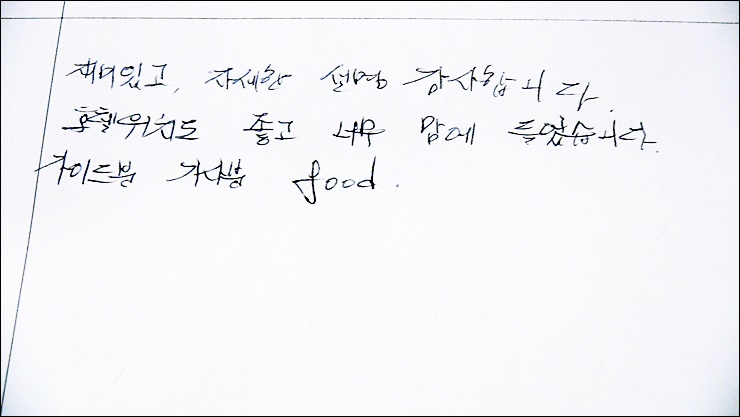 재미있고, 자세한 설명 감사합니다.
호텔위치도 좋고 너무 맘에 들었습니다.
가이드분 기사분 food.